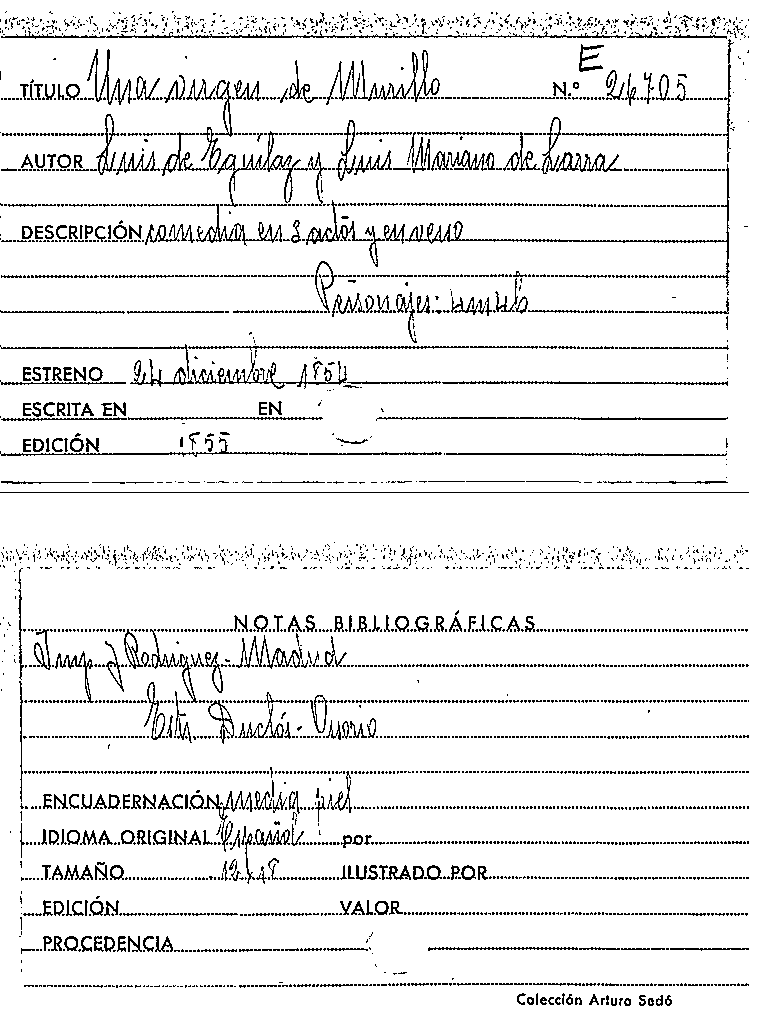 E
TÍTULO Una virgen de Murillo N.º 26705
AUTOR Luis de Eguilaz y Luis Mariano de Larra
DESCRIPCIÓN comedia en 3 actos y en verso
Personajes: 4m4h
ESTRENO 24 diciembre 1854
ESCRITA EN EN
EDICIÓN 1855
NOTAS BIBLIOGRÁFICAS
Imp J Rodriguez - Madrid
Estr. Duclós - Osorio
ENCUADERNACIÓN media piel
IDIOMA ORIGINAL Español por
TAMAÑO 12/18 ILUSTRADO POR
EDICIÓN VALOR
PROCEDENCIA
Colección Arturo Sedó